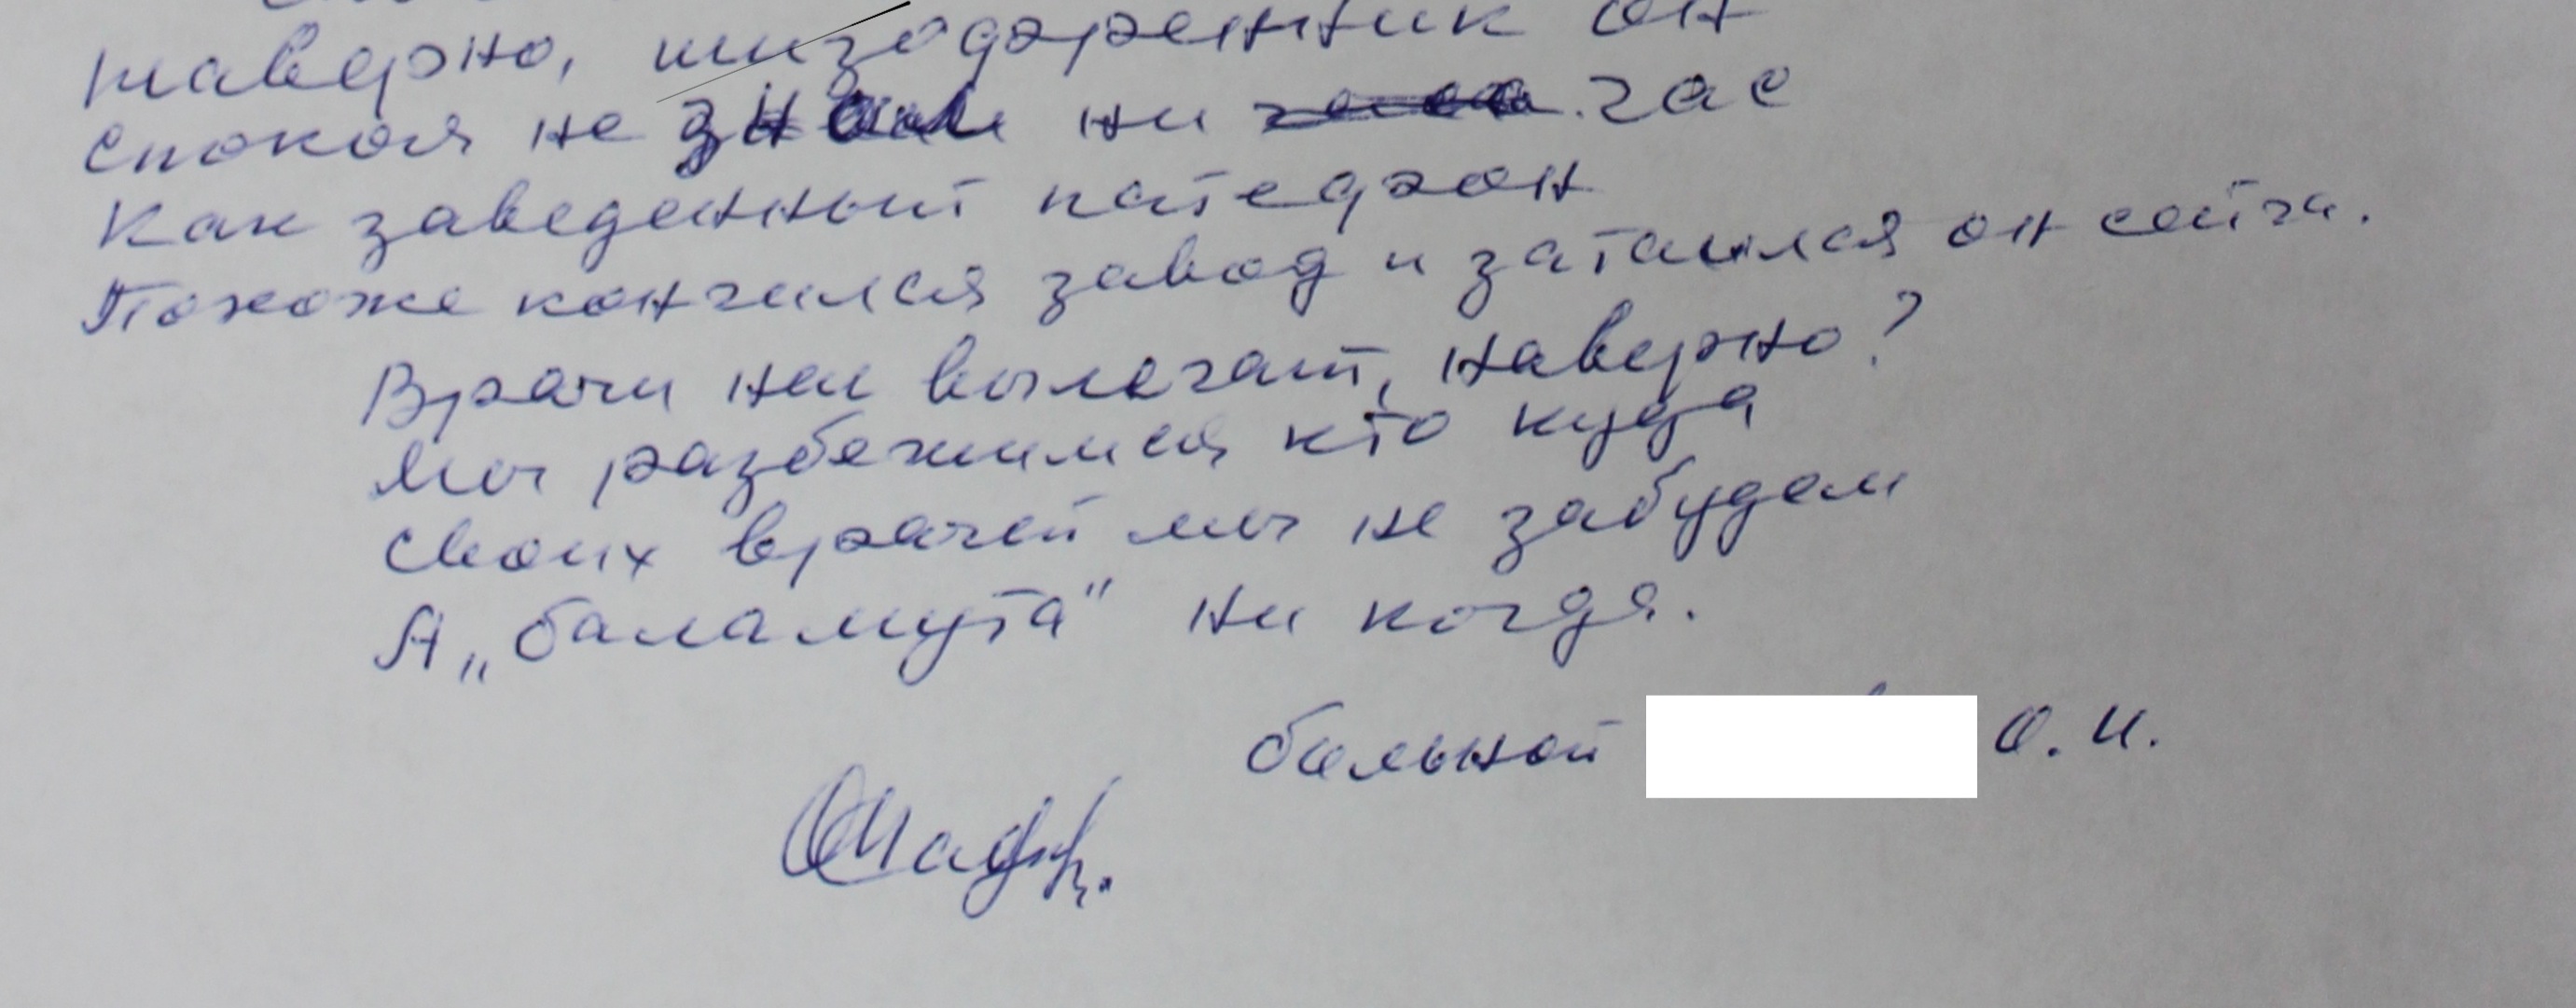 наверно, шизофренник он
спокоя не знаем ни час
Как заведенный патефон
Похоже кончился завод и затаился он сейча.
Врачи нас вылечат, наверно?
Мы разбежимся кто куда
Своих врачей мы не забудем
А „баламута" ни когда.
больной О. И.